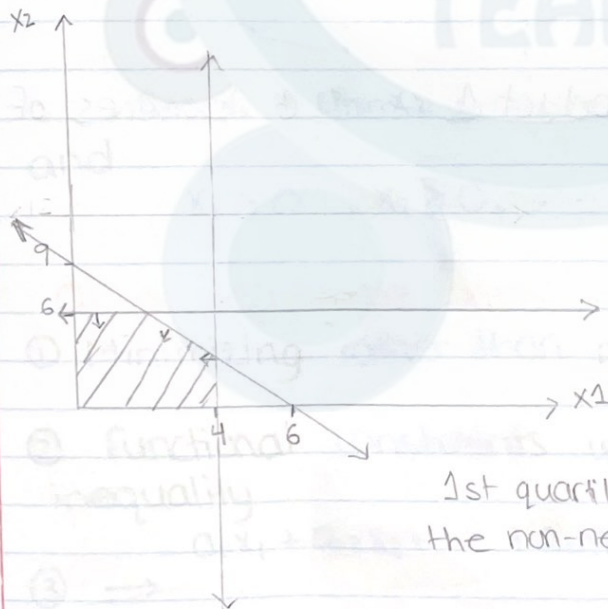 X2
9
6
X1
4
6
1st quartil
the non-ne